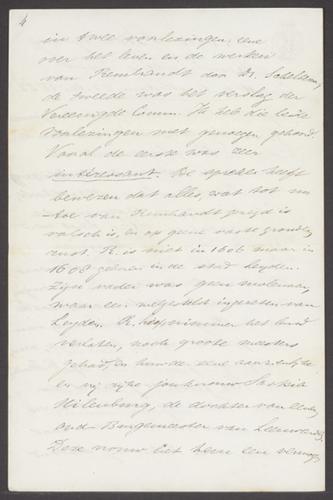 4
in twee voorlezingen, eene
over het leven en de werken
van Rembrandt door Dr. Scheltema,
de tweede was het verslag der
Vereenigde Comm. Ik heb die beide
voorlezingen met genoegen gehoord.
Vooral de eerste was zeer
interessant. De spreker heeft
bewezen dat alles, wat tot nu
toe van Rembrandt gezegd is
valsch is, en op geene vaste gronden
rust. R. is niet in 1606 maar in
1608 geboren in de stad Leyden.
Zijn vader was geen molenaar,
maar een welgesteld ingezeten van
Leyden. R. heeft nimmer het land
verlaten, noch groote meesters
gehad, en huwde eene aanzienlijke
en vrij rijke jonkvrouw Saskia
Uilenburg, de dochter van
oud-Burgemeester van Leeuwarden.
Deze vrouw liet hem een